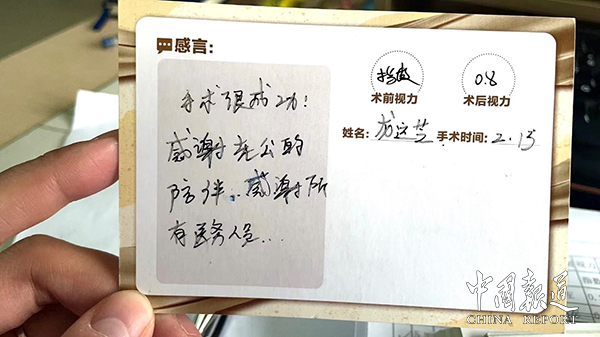 感言:
手术很成功!
感谢老公的
陪伴、感谢所
有医务人员...
指数
术前视力
0.8
术后视力
姓名: 龙运芝 手术时间: 2.15
中国报道
CHINA REPORT